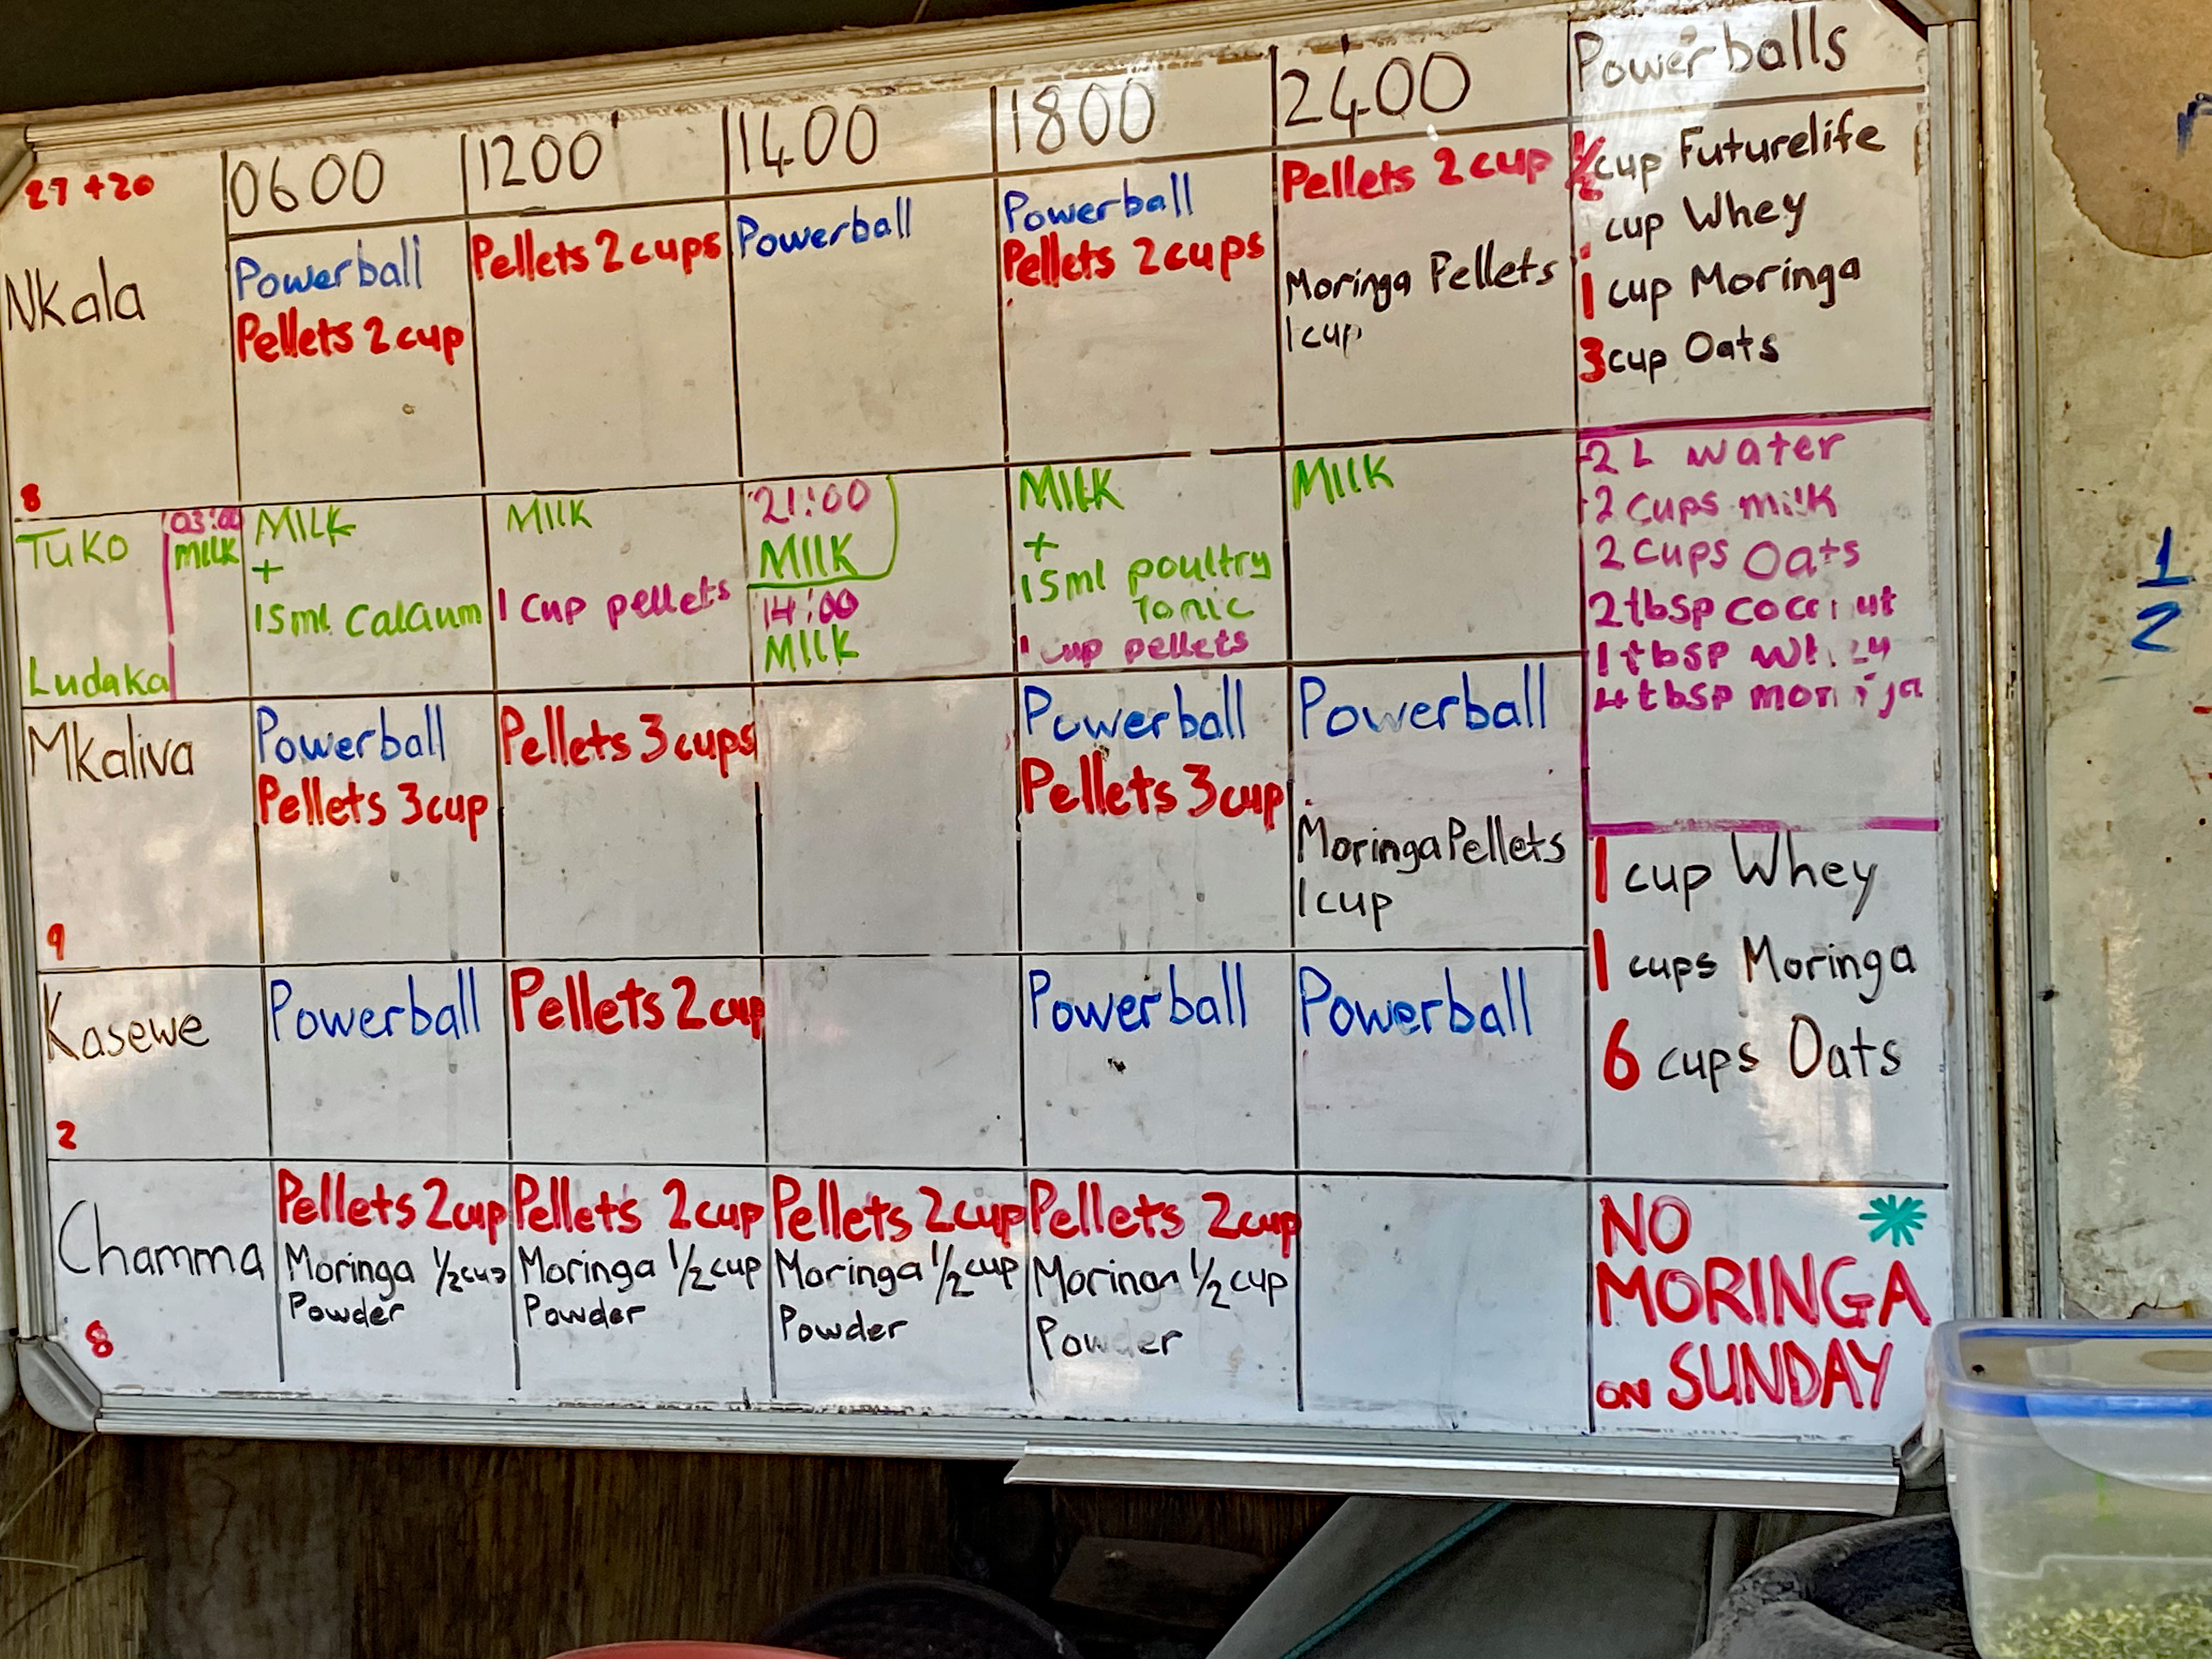 27 +20
0600
1200
1400
1800
2400
Powerballs
Nkala
8
Powerball
Pellets 2 cup
Pellets 2 cups
Powerball
Powerball
Pellets 2 cups
Pellets 2 cup
Moringa Pellets
1 cup
½ cup Futurelife
cup Whey
1 cup Moringa
3 cup Oats
Tuko
Ludaka
03:00
MILK
MILK
+
15ml Calcium
MILK
1 cup pellets
21:00
MILK
14:00
MILK
MILK
+
15ml poultry
Tonic
1 cup pellets
MILK
2 L water
2 cups milk
2 cups Oats
2 tbsp
1 tbsp
4 tbsp
Mkaliva
9
Powerball
Pellets 3 cup
Pellets 3 cups
Powerball
Pellets 3 cup
Powerball
Moringa Pellets
1 cup
1 cup Whey
1 cups Moringa
6 cups Oats
Kasewe
2
Powerball
Pellets 2 cup
Powerball
Powerball
Chamma
8
Pellets 2 cup
Moringa ½ cup
Powder
Pellets 2 cup
Moringa ½ cup
Powder
Pellets 2 cup
Moringa ½ cup
Powder
Pellets 2 cup
Moringa ½ cup
Powder
NO
MORINGA
ON SUNDAY
1
2